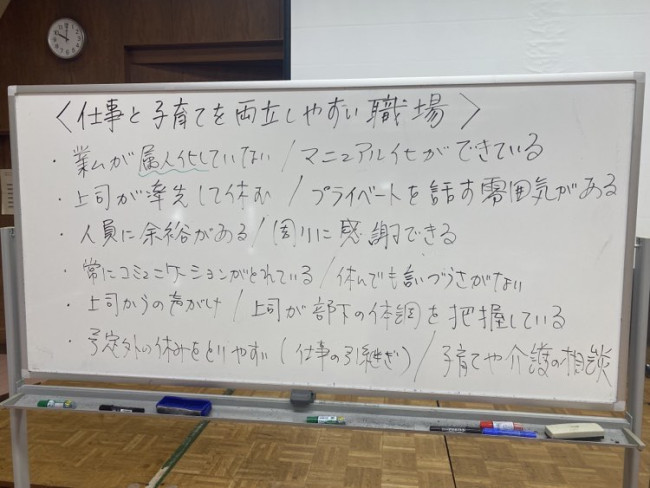 〈仕事と子育てを両立しやすい職場〉
・業ムが属人化していない/マニュアル化ができている
・上司が率先して休む/プライベートを話す雰囲気がある
・人員に余裕がある/周りに感謝できる
・常にコミュニケーションがとれている/休んでも言いづらさがない
・上司からの声がけ/上司が部下の体調を把握している
・予定外の休みをとりやすい(仕事の引継ぎ)/子育てや介護の相談